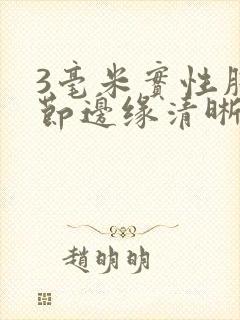 3毫米實性肺
節邊緣清晰
趙明明